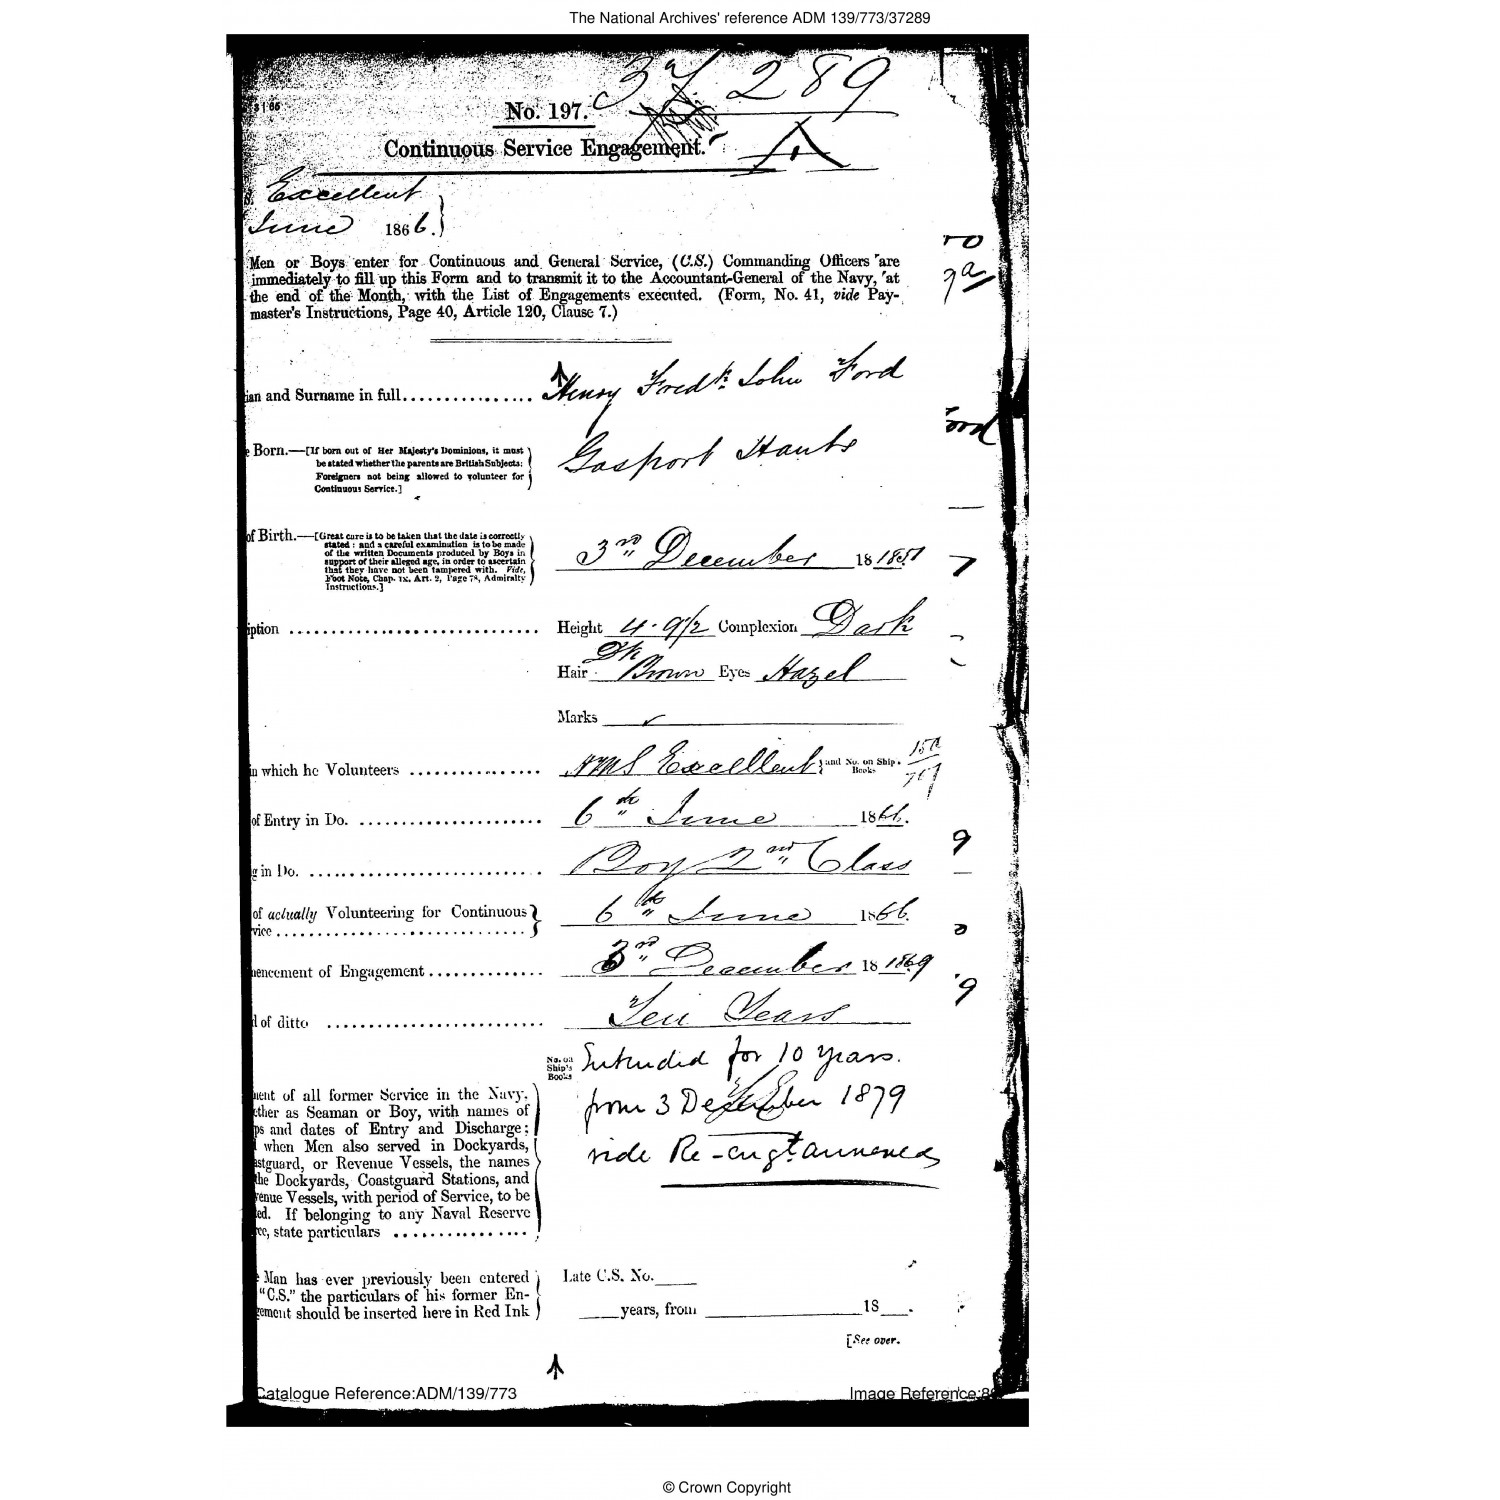 The National Archives' reference ADM 139/773/37289
37,289
No. 197.
Continuous Service Engagement.
Excellent
June 1866.}
Men or Boys enter for Continuous and General Service, (C.S.) Commanding Officers are
immediately to fill up this Form and to transmit it to the Accountant-General of the Navy, at
the end of the Month, with the List of Engagements executed. (Form, No. 41, vide Pay-
master's Instructions, Page 40, Article 120, Clause 7.)
ian and Surname in full............... Henry Fredk. John Ford
ord
e Born.—[If born out of Her Majesty's Dominions, it must
be stated whether the parents are British Subjects:
Foreigners not being allowed to volunteer for
Continuous Service.]
Gosport Hants
of Birth.—[Great care is to be taken that the date is correctly
stated: and a careful examination is to be made
of the written Documents produced by Boys in
support of their alleged age, in order to ascertain
that they have not been tampered with. Vide,
Foot Note, Chap. ix. Art. 2, Page 78, Admiralty
Instructions.]
3rd December 18 1851
7
iption ............................... Height 4.9½ Complexion Dark
Hair Dk Brown Eyes Hazel
Marks ✓
in which he Volunteers ................ HMS Excellent } and No. on Ship's Books
of Entry in Do. ...................... 6th June 1866.
9
g in Do. ............................ Boy 2nd Class
of actually Volunteering for Continuous }
vice ............................... }
6th June 1866.
mencement of Engagement............. 3rd December 18 1869
9
d of ditto .......................... Ten Years
No. on
Ship's
Books
Intended for 10 years.
from 3 December 1879
vide Re-engt. annexed
ment of all former Service in the Navy,
ether as Seaman or Boy, with names of
ps and dates of Entry and Discharge;
l when Men also served in Dockyards,
astguard, or Revenue Vessels, the names
the Dockyards, Coastguard Stations, and
venue Vessels, with period of Service, to be
ed. If belonging to any Naval Reserve
rce, state particulars ................
e Man has ever previously been entered
"C.S." the particulars of his former En-
gement should be inserted here in Red Ink
Late C.S. No.____
____years, from ____________18___.
[See over.
Catalogue Reference:ADM/139/773
Image Reference:8
© Crown Copyright